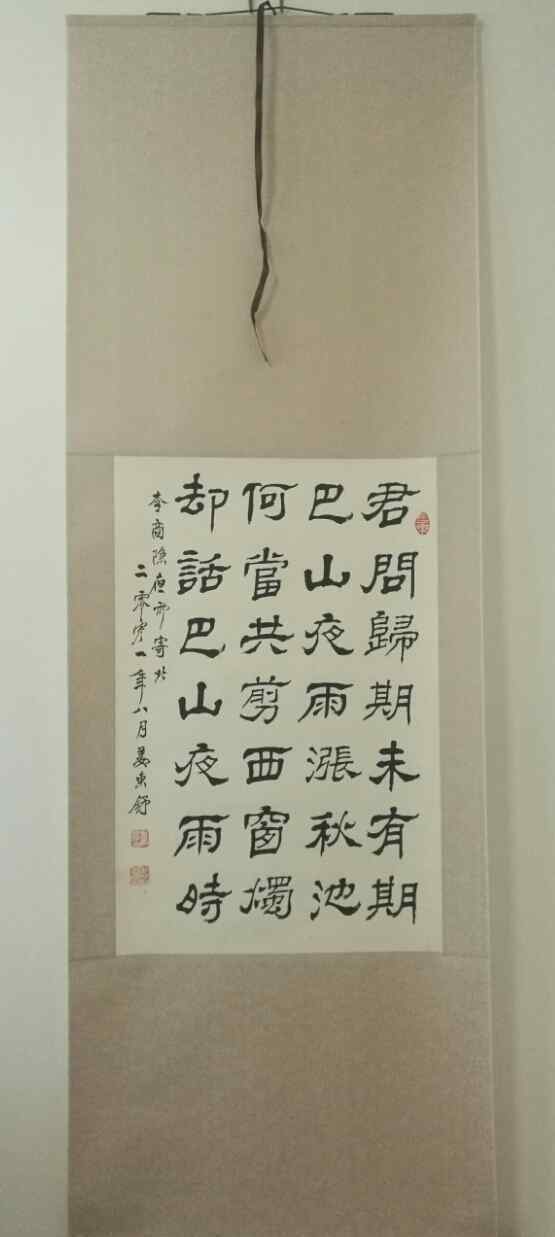 君問歸期未有期
巴山夜雨漲秋池
何當共剪西窗燭
却話巴山夜雨時
李商隱夜雨寄北
二零零一年八月姜東舒